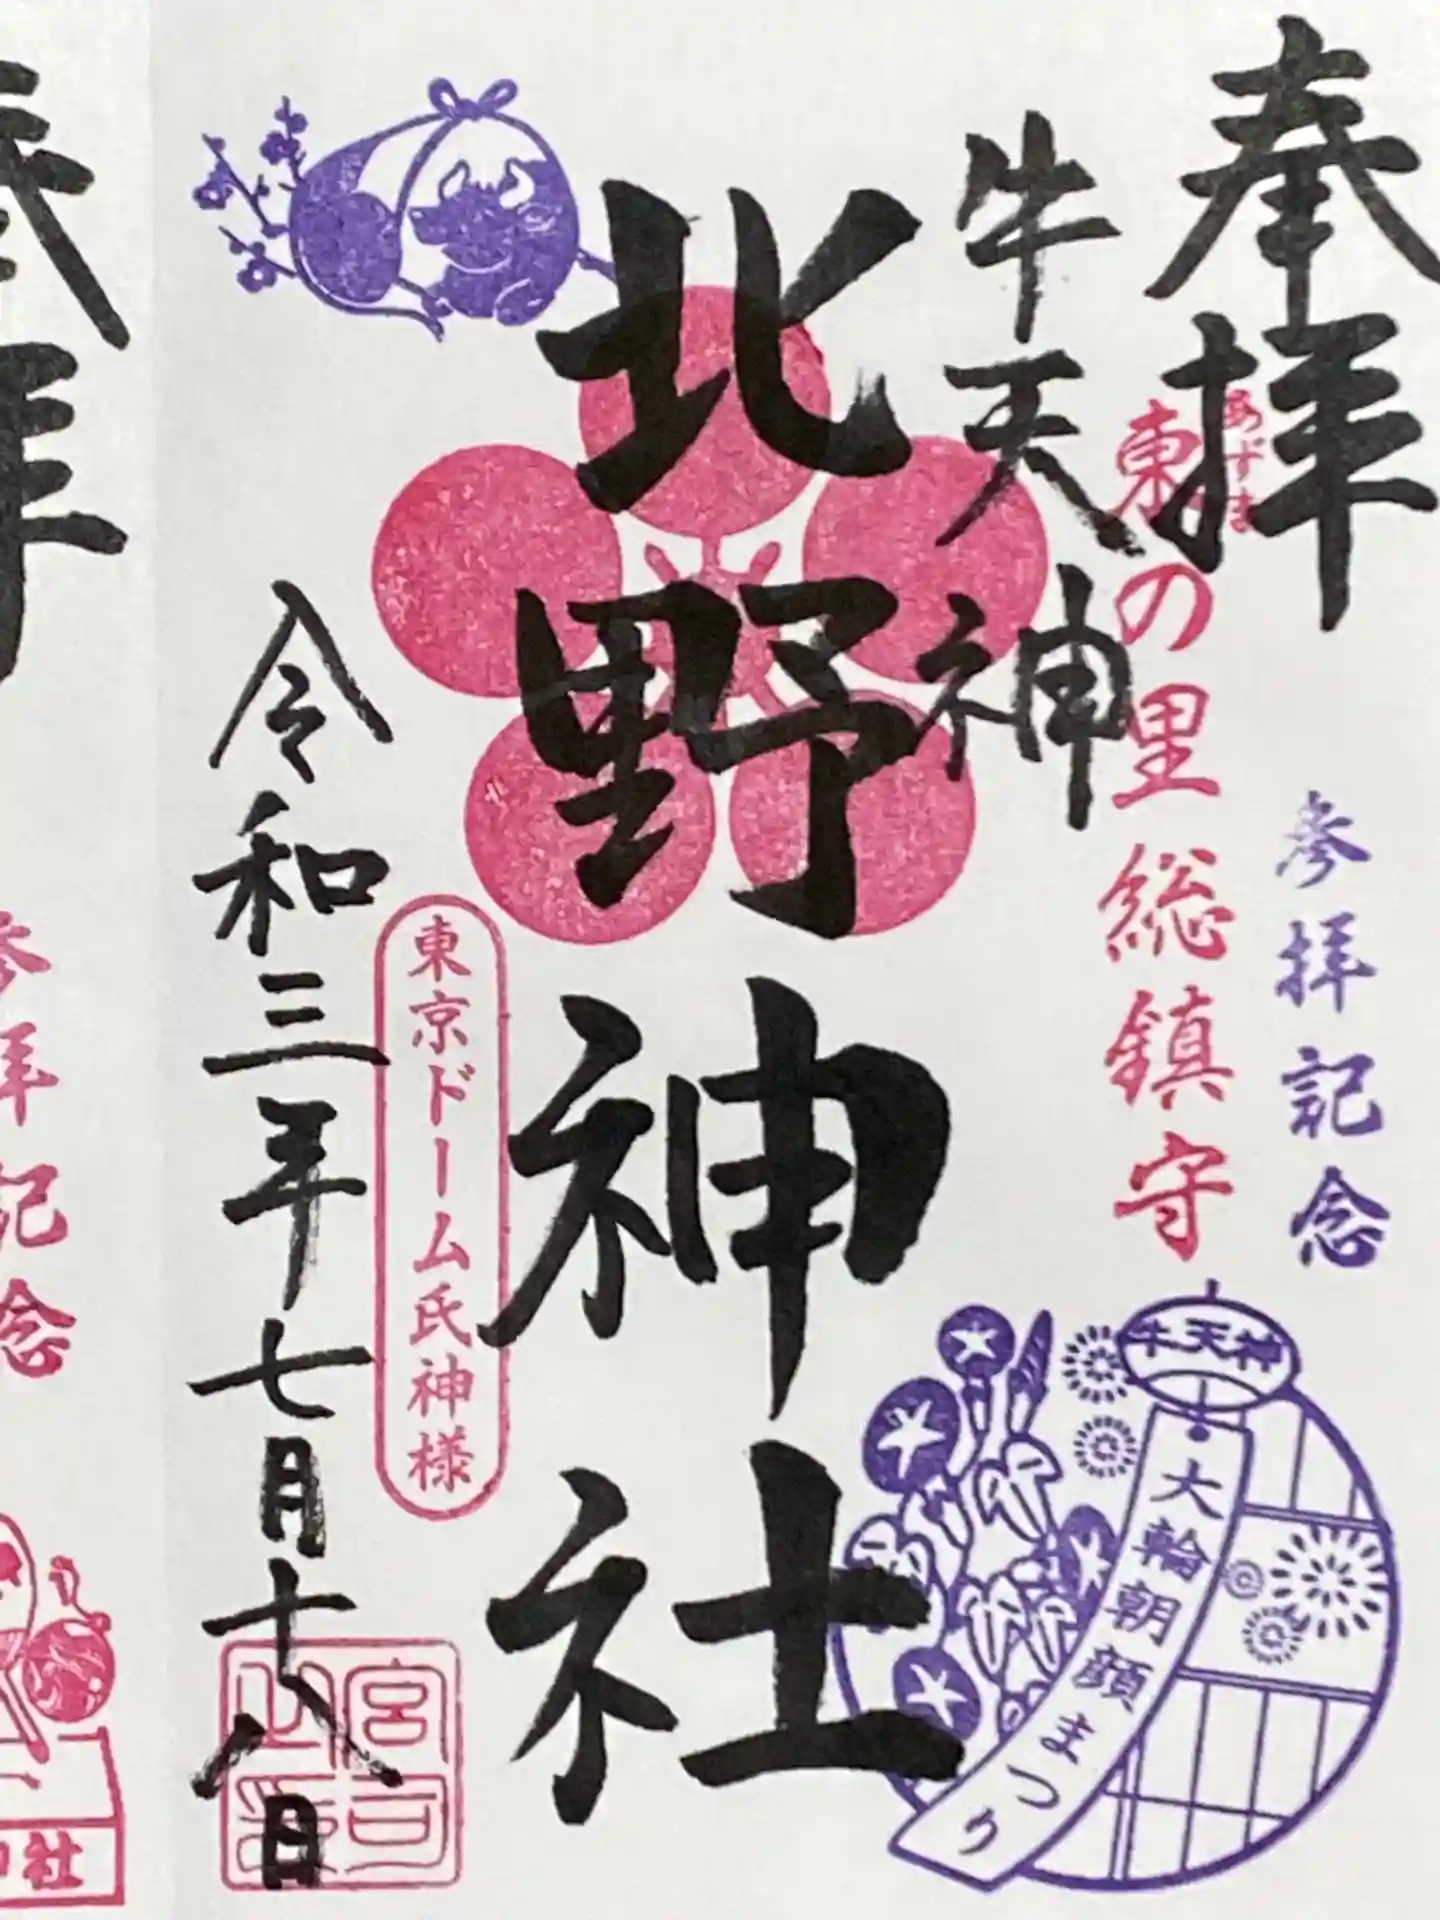 奉拝
参拝記念
あずま
東の里総鎮守
牛天神
牛天神
大輪朝顔まつり
北野神社
東京ドーム氏神様
令和三年七月十八日
宮司
奉拝
参拝記念
神社